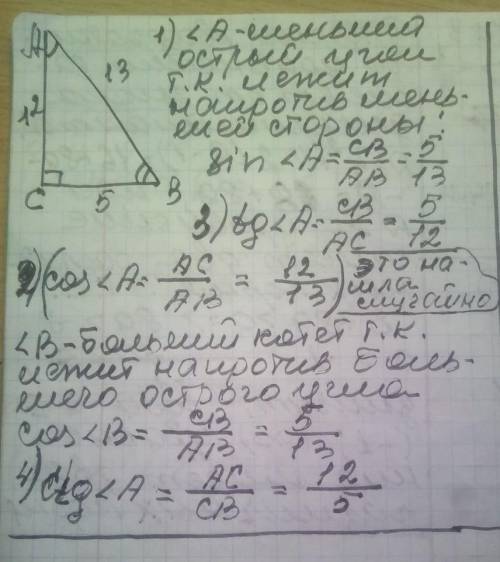 A
13
12
C
5
B
1) ∠A - меньший
острый угол
т.к. лежит
напротив мень-
шей стороны:
sin ∠A = CB/AB = 5/13
3) tg ∠A = CB/AC = 5/12
2) (cos ∠A = AC/AB = 12/13) это на-
шла
случайно
∠B - больший катет т.к.
лежит напротив боль-
шего острого угла
cos ∠B = CB/AB = 5/13
4) ctg ∠A = AC/CB = 12/5